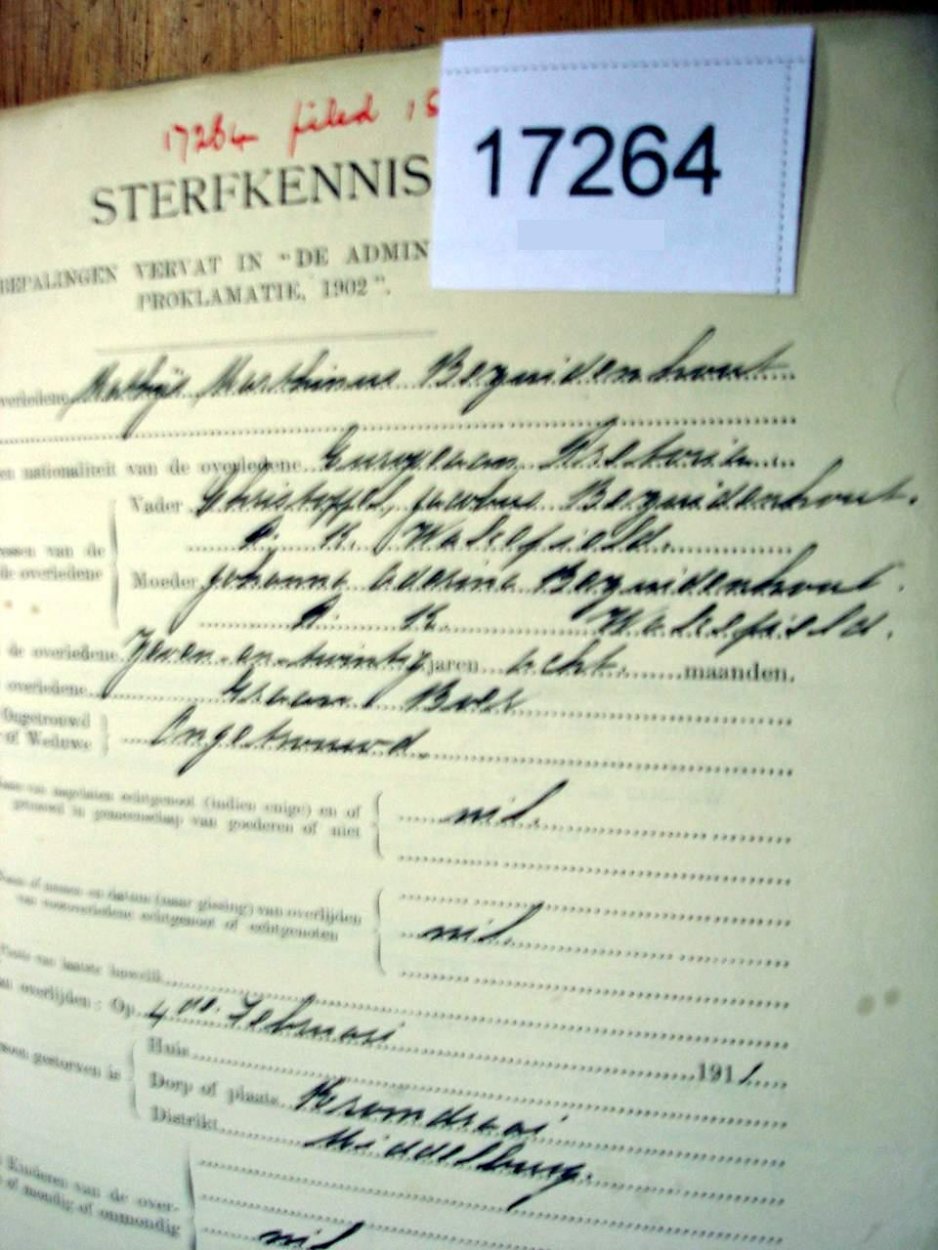 17264 filed 15
17264
STERFKENNIS
BEPALINGEN VERVAT IN "DE ADMIN
PROKLAMATIE, 1902".
overledene Mathijs Marthinus Bezuidenhout
en nationaliteit van de overledene European Pretoria
Vader Christoffel Jacobus Bezuidenhout.
P. K. Wakefield.
van de
de overledene
Moeder Johanna Bezuidenhout.
P. K. Wakefield.
de overledene Zeven en twintig jaren acht maanden.
overledene Graan Boer
Ongetrouwd
of Weduwe
Ongetrouwd
nagelaten echtgenoot (indien enige) en of
getrouwd in gemeenschap van goederen of niet
nil.
Naam of namen en datum (naar gissing) van overlijden
van vooroverledene echtgenoot of echtgenoten
nil.
van laatste huwelik
van overlijden: Op 4de Februari 1911
Huis
gestorven is
Dorp of plaats Kromdraai
Distrikt Middelburg.
Kinderen van de over-
of mondig of onmondig
nil